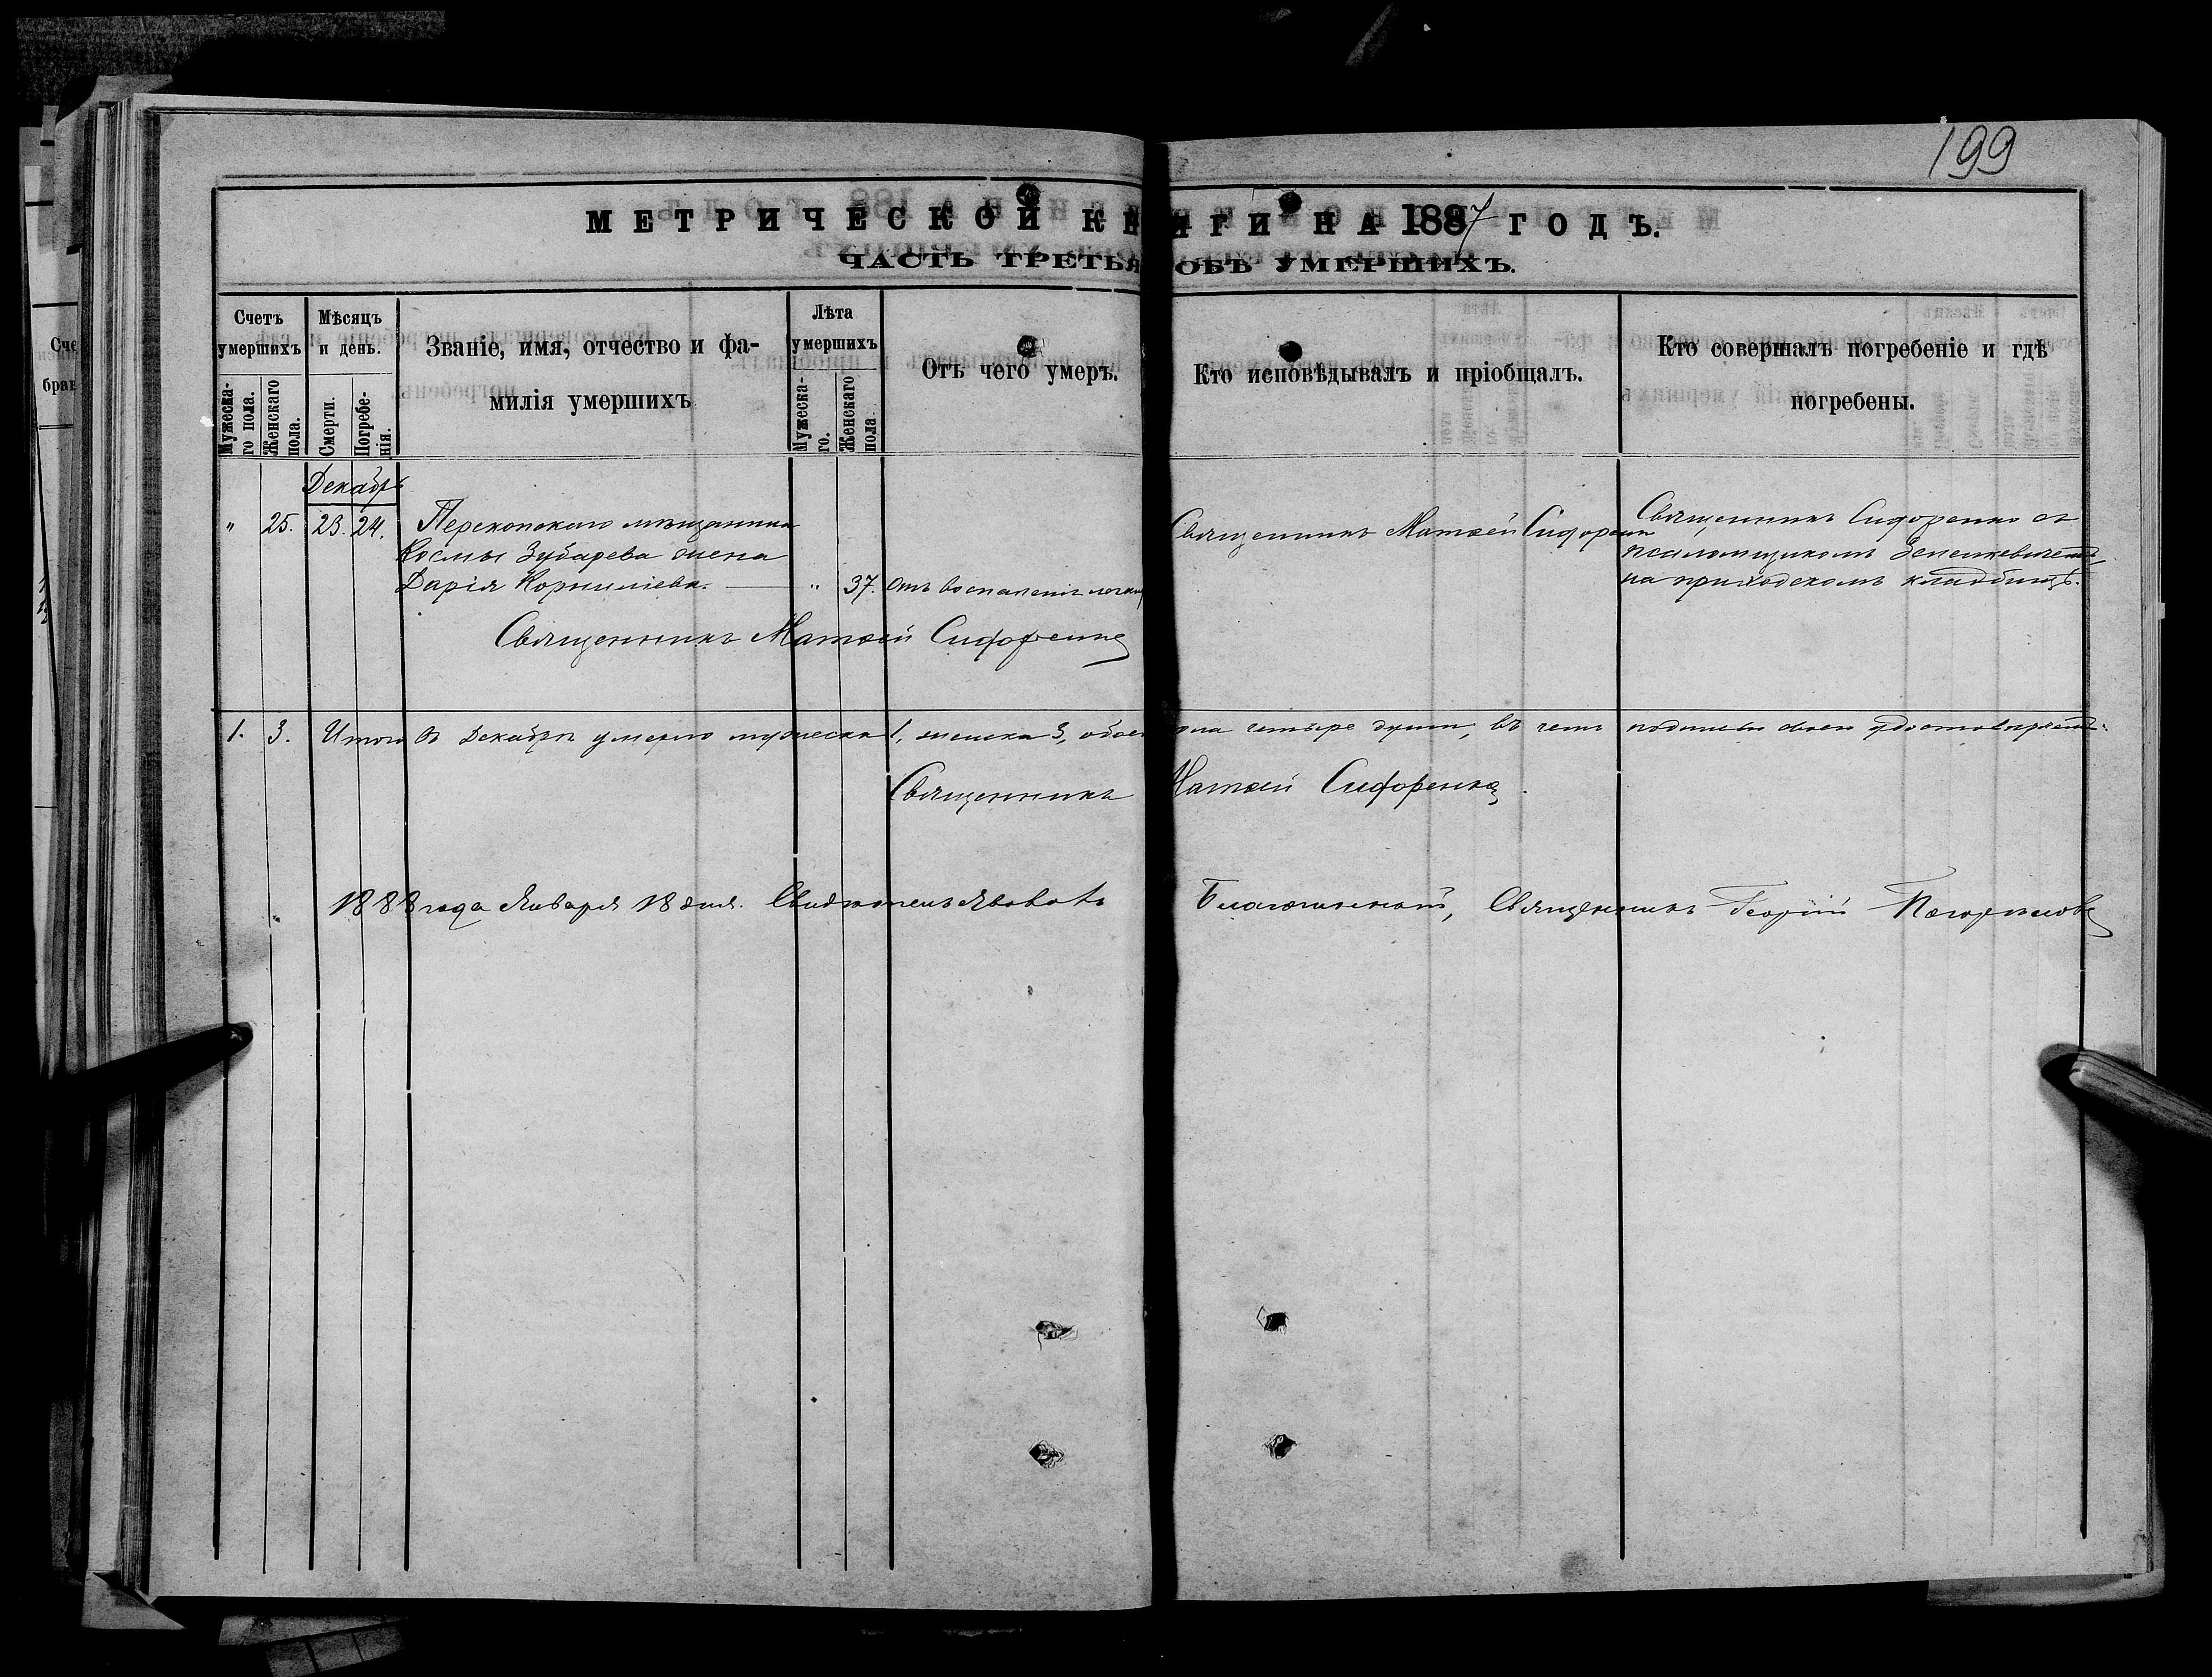 199
МЕТРИЧЕСКОЙ КНИГИ НА 1887 ГОДЪ.
ЧАСТЬ ТРЕТЬЯ ОБЪ УМЕРШИХЪ.
Счетъ умершихъ
Мужеска-го пола.
Женскаго пола.
Мѣсяцъ и день.
Смерти.
Погребе-нія.
Званіе, имя, отчество и фа-
милія умершихъ
Лѣта умершихъ
Мужеска-го.
Женскаго пола.
Отъ чего умеръ.
Кто исповѣдывалъ и пріобщалъ.
Кто совершалъ погребеніе и гдѣ
погребены.
Декабрь
" 25. 23. 24. Перекопскаго мѣщанина
Космы Зубарева жена
Дарія Корниліева. " 37. Отъ воспаленія легкихъ
Священникъ Матѳей Сидоренко
Священникъ Сидоренко съ
псаломщикомъ
на приходскомъ кладбищѣ.
Священникъ Матѳей Сидоренко
1. 3. Итого въ Декабрѣ умерло мужеска 1, женска 3, обоего пола четыре души, въ чемъ подписью своею удостовѣряемъ.
Священникъ Матѳей Сидоренко
1888 года Января 18 дня. Свидѣтельствовалъ Благочинный, Священникъ Георгій